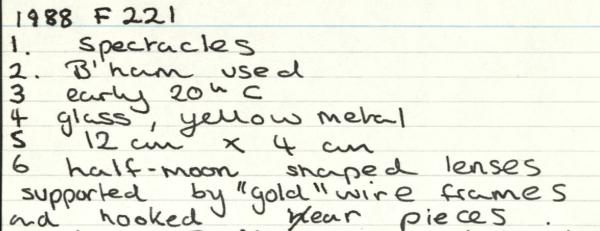 1988 F 221
1. spectacles
2. B'ham used
3 early 20th C
4 glass, yellow metal
5 12 cm x 4 cm
6 half-moon shaped lenses
supported by "gold" wire frames
and hooked ear pieces.